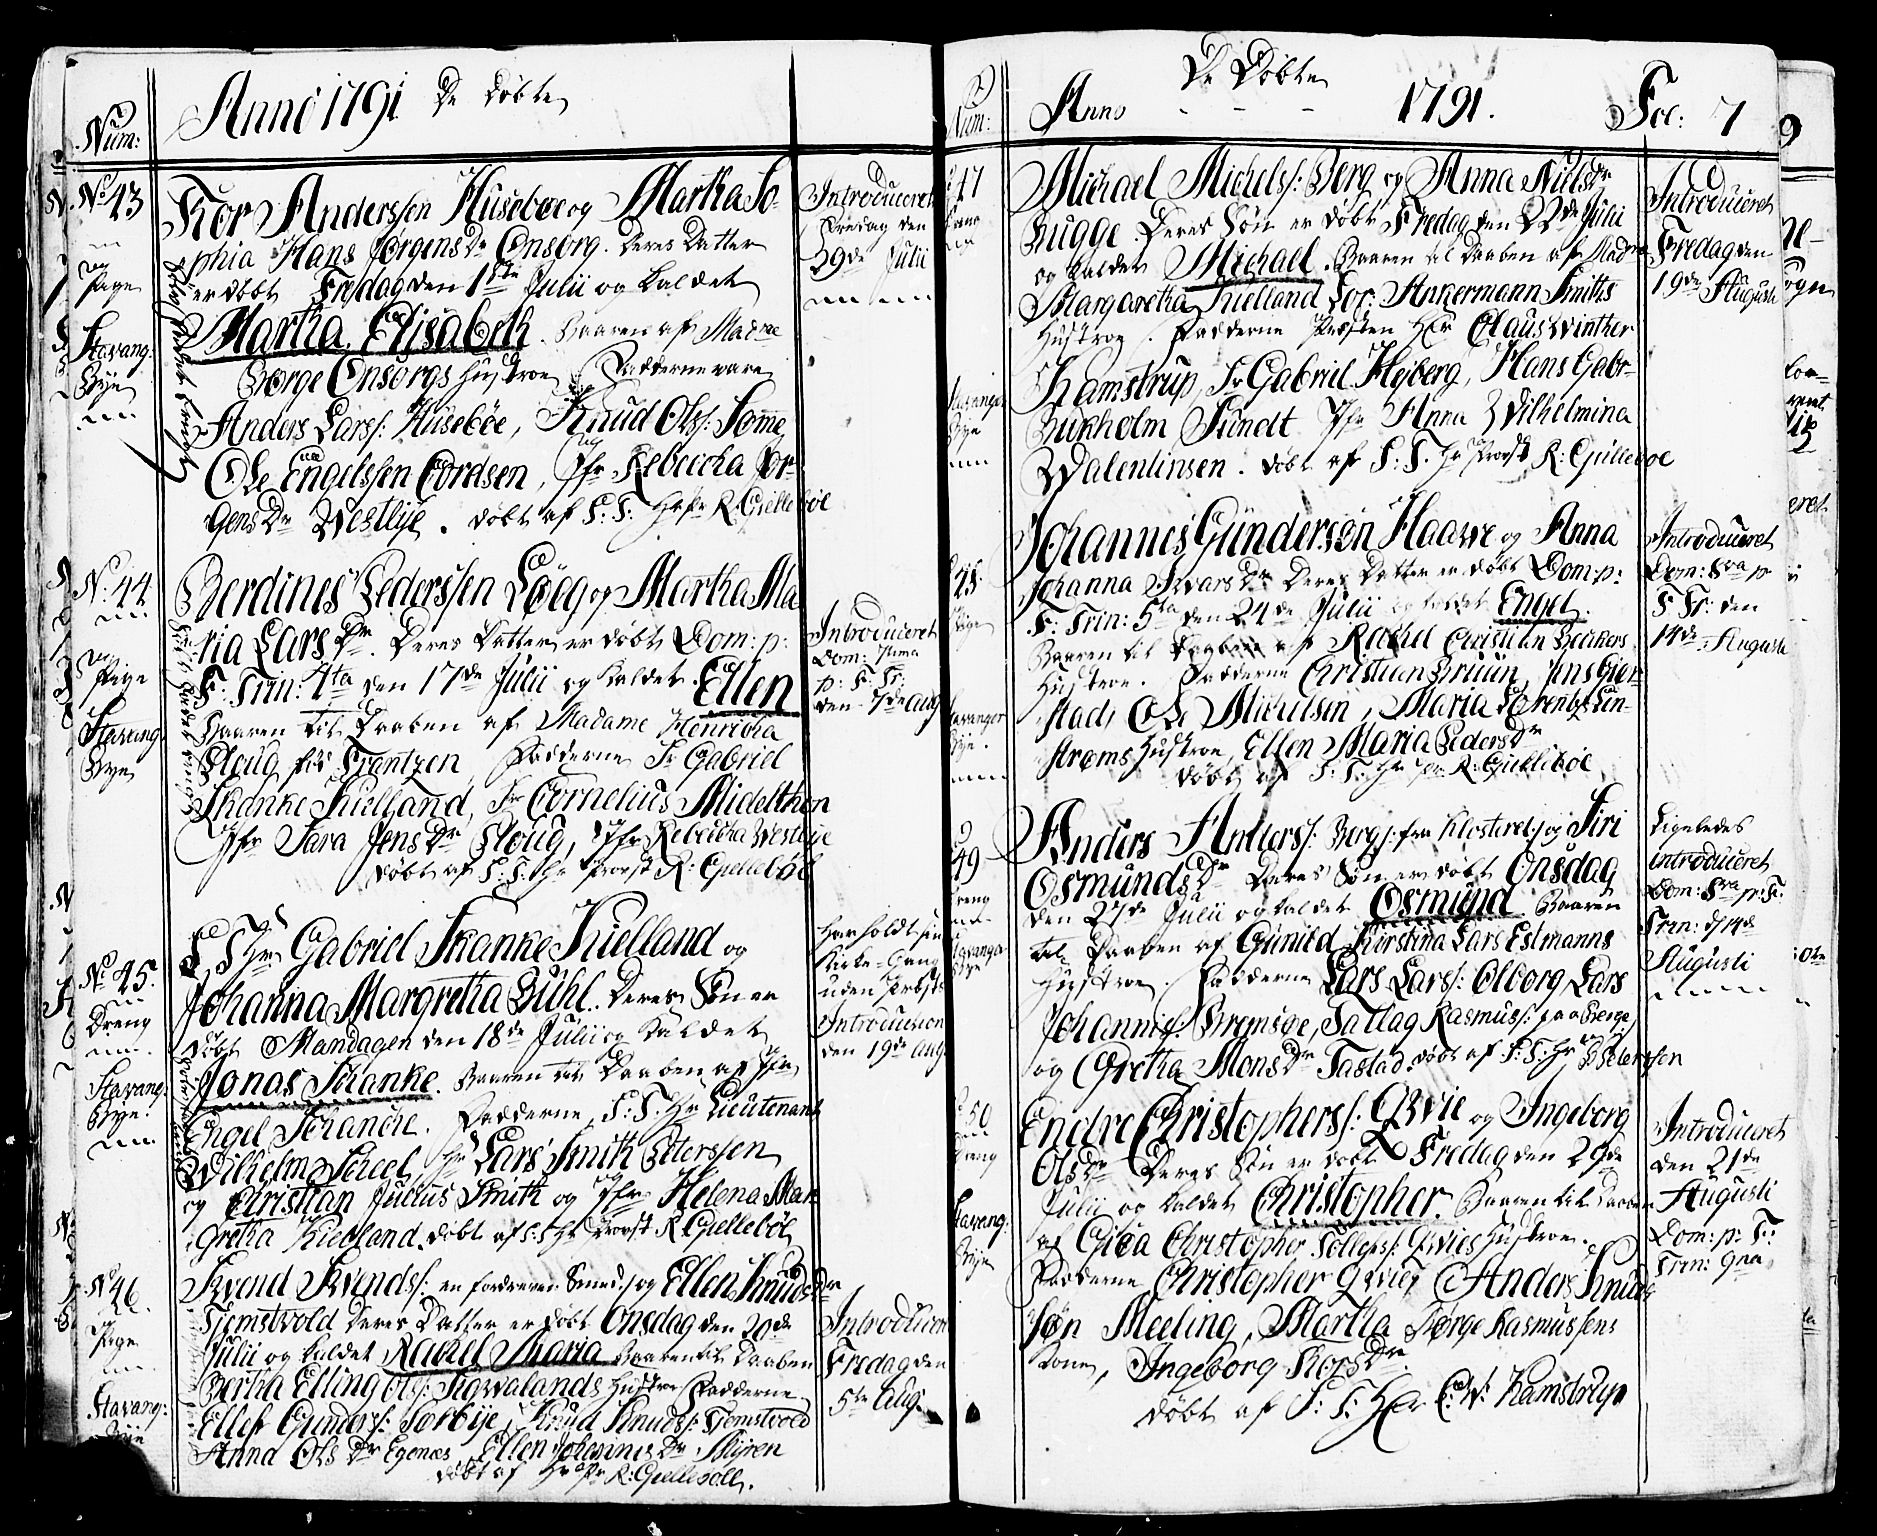 Anno 1791 De Døbte
Num:
No 43
Pige
Stavang:
Bye
Kor Anderssen Husebøe og Martha So-
phia Hans Jørgens Dr Onsorg. Deres Datter
er døbt Fredag den 1ste Julii og kaldet
Martha Elisabeth. Baaren af Madme
Børge Onsorgs Hustroe Fadderne vare
Anders Larss: Husebøe, Knud Olss: Somme
Ole Engelssen Cordsen, Jfr Rebeccha Jør-
gens Dr Westbye. døbt af S: T: Hr Pr R: Gjellebøl
Introduceret
Fredag den
29de Julii
No: 44
Pige
Stavang:
Bye
Berdines Pederssen Løeg og Martha Ma
ria Lars Dr. Deres Datter er døbt Dom: p:
F: Trin: 4ta den 17de Julii og kaldet Ellen
Baaren til Daaben af Madame Henricha
Ploug, Frantzen, Fadderne Sr Gabriel
Skanke Kielland, Sr Cornelius Midelthon
Jfr Sara Jens Dr Ploug, Jfr Rebeccha Westbye
døbt af S: T: Hr Provst R: Gjellebøl
Introduceret
Dom: 7tima
p: F: Tr:
den 7de Aug
No 45.
Dreng
Stavang:
Bye
S T Hr Gabriel Skanke Kielland og
Johanna Margretha Buhl. Deres Søn er
døbt Mandagen den 18de Julii og kaldet
Jonas Schanke. Baaren til Daaben af Jfr
Engel Schanche. Fadderne, S: T: Hr Lieutenant
Wilhelm Scheel, Hr Lars Smith Petterssen
og Christian Julius Smith og Jfr Helena Mar
gretha Kielland. døbt af S: T: Hr Provst R Gjellebøl
Har holdt sin
Kirke-Gang
uden Præstens
Introduction
den 19de Aug.
No 46.
Pige
Stavang:
Bye
Svend Svends: en fordreven Smed og Ellen Knuds Dr
Tjemstvold Deres Datter er døbt Onsdag den 20de
Julii og kaldet Rachel Maria Baaren til Daaben
Bertha Elling Olss: Kaxvalands Hustroe Fadderne
Ellef Gunderss: Sørbye, Knud Knuds: Tjemstvold
Anna Ols Dr Egenæs Ellen Johannes Dr Myren
døbt af Hr Pr R: Gjellebøll.
Introducer
Fredag den
5te Aug:
De Døbte
Num: Anno 1791. Fol: 7
47
Stavanger
Bye
Michael Michelss: Berg og Anna Niels Dr
Bugge. Deres Søn er døbt Fredag den 22de Julii
og kaldet Michael. Baaren til Daaben af Madme
Margaretha Kielland Sor: Ankermann Smiths
Hustroe. Fadderne Præsten Hr Olaus Winther
Kamstrup, Sr Gabriel Høiberg, Hans Gabr-
Bukholm Sundt Jfr Anna Wilhelmina
Walentinsen. døbt af S: T: Hr Provst R: Gjellebøl
Introduceret
Fredag den
19de Augusti
48.
Pige
Stavanger
Bye.
Johannes Gundersøn Haave og Anna
Johanna Ivars Dr Deres Datter er døbt Dom: p:
F: Trin: 5ta den 24de Julii og kaldet Engel.
Baaren til Daaben af Rachel Christian Beckers
Hustroe. Fadderne Christian Bruun, Jens Gier-
stad, Ole Michelsen, Maria Lorentz Lin-
strøms Hustroe, Ellen Maria Peders Dr
døbt af S: T: Hr Pr: R: Gjellebøl
Introduceret
Dom: 8va p
F Tr: den
14de Augusti
49
Dreng
Stavanger
Bye
Anders Anderss: Berg fra Klosteret og Siri
Osmunds Dr Deres Søn er døbt Onsdag
den 27de Julii og kaldet Osmund Baaren
til Daaben af Gunild Kirstina Lars Estmanns
Hustroe. Fadderne Lars Larss: Olborg, Lars
Johannes: Bremsøe, Tallag Rasmuss:
og Gretha Mons Dr Tastad. døbt af S: T: Hr P Peterssen
Ligeledes
introduceret
Dom: 8va p: F:
Trin: d 14de
Augusti
50
Dreng
Stavang:
Bye
Endre Christopherss: Qvie og Ingeborg
Ols Dr Deres Søn er døbt Fredag den 29de
Julii og kaldet Christopher. Baaren til Daaben
af Gitta Christopher Tollefss: Qvies Hustroe.
Fadderne Christopher Qvie, Anders Knuds
Søn Meeling, Martha Børge Rasmussens
Kone, Ingeborg Kors Dr.
døbt af S: T: Hr C: W: Kamstrup
Introduceret
den 21de
Augusti
Dom: p: F:
Trin: 9na